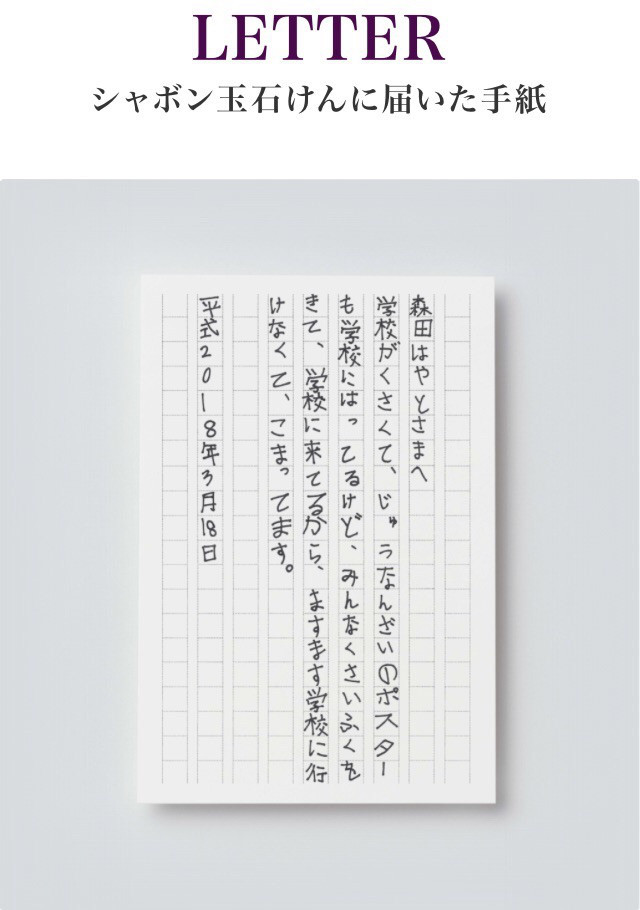 LETTER
シャボン玉石けんに届いた手紙
森田はやとさまへ
学校がくさくて、じゅうなんざいのポスター
も学校にはってるけど、みんなくさいふくを
きて、学校に来てるから、ますます学校に行
けなくて、こまってます。
平式2018年3月18日